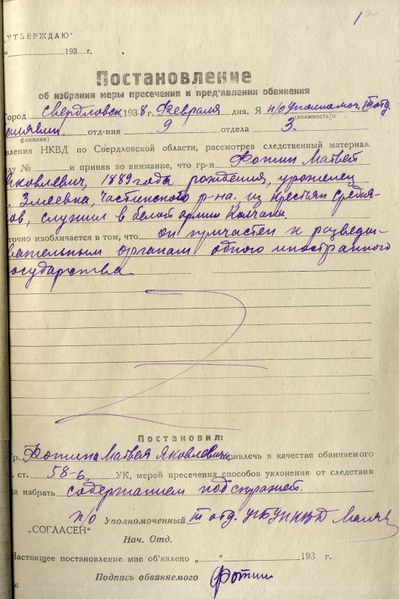 1
„УТВЕРЖДАЮ“
„ 193 г.
Постановление
об избрании меры пресечения и пред'явлении обвинения
Город Свердловск 1938 г. Февраля дня. Я п/оуполномоч. III отд.
(должность)
отд-ния 9 отдела 3.
(фамилия)
вления НКВД по Свердловской области, рассмотрев следственный материал
лу № и приняв во внимание, что гр-н Фотин Матвей
Яковлевич, 1889 года рождения, уроженец
Змеевка, Частинского р-на, из крестьян средня-
ов, служил в белой армии Колчака
точно изобличается в том, что он причастен к разведы-
вательным органам одного иностранного
государства
Постановил:
гр. Фотина Матвея Яковлевича привлечь в качестве обвиняемого
ст. 58-6 УК, мерой пресечения способов уклонения от следствия
да избрать содержанием под стражей.
п/о Уполномоченный III отд. УГБ УНКВД
„СОГЛАСЕН“
Нач. Отд.
Настоящее постановление мне объявлено „ “ 193 г.
Подпись обвиняемого Фотин